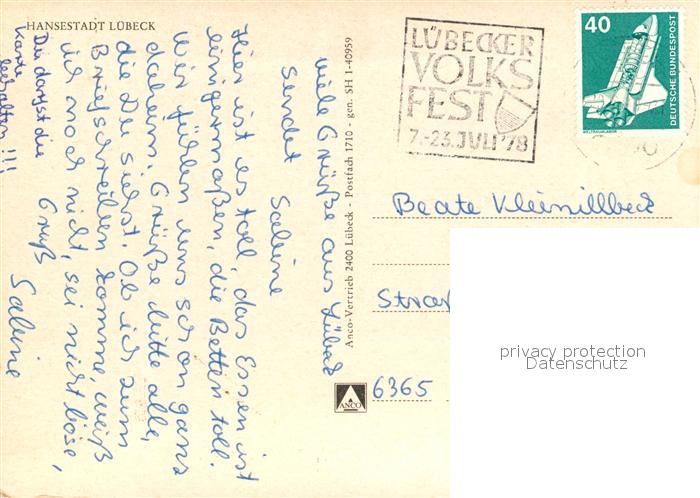 HANSESTADT LÜBECK
Du darfst die
Karte
behalten!!!
viele Grüße aus Lübeck
sendet Sabine
Hier ist es toll, das Essen ist
einigermaßen, die Betten toll.
Wir fühlen uns schon ganz
daheim. Grüße bitte alle,
die Du siehst. Ob ich zum
Briefschreiben komme, weiß
ich noch nicht, sei nicht böse,
Gruß Sabine
Anco-Vertrieb 2400 Lübeck - Postfach 1710 - gen. SH 1-40959
ANCO
LÜBECKER
VOLKS
FEST
7.-23. JULI '78
40
DEUTSCHE BUNDESPOST
WELTRAUMLABOR
Beate
Straß
6365
privacy protection
Datenschutz